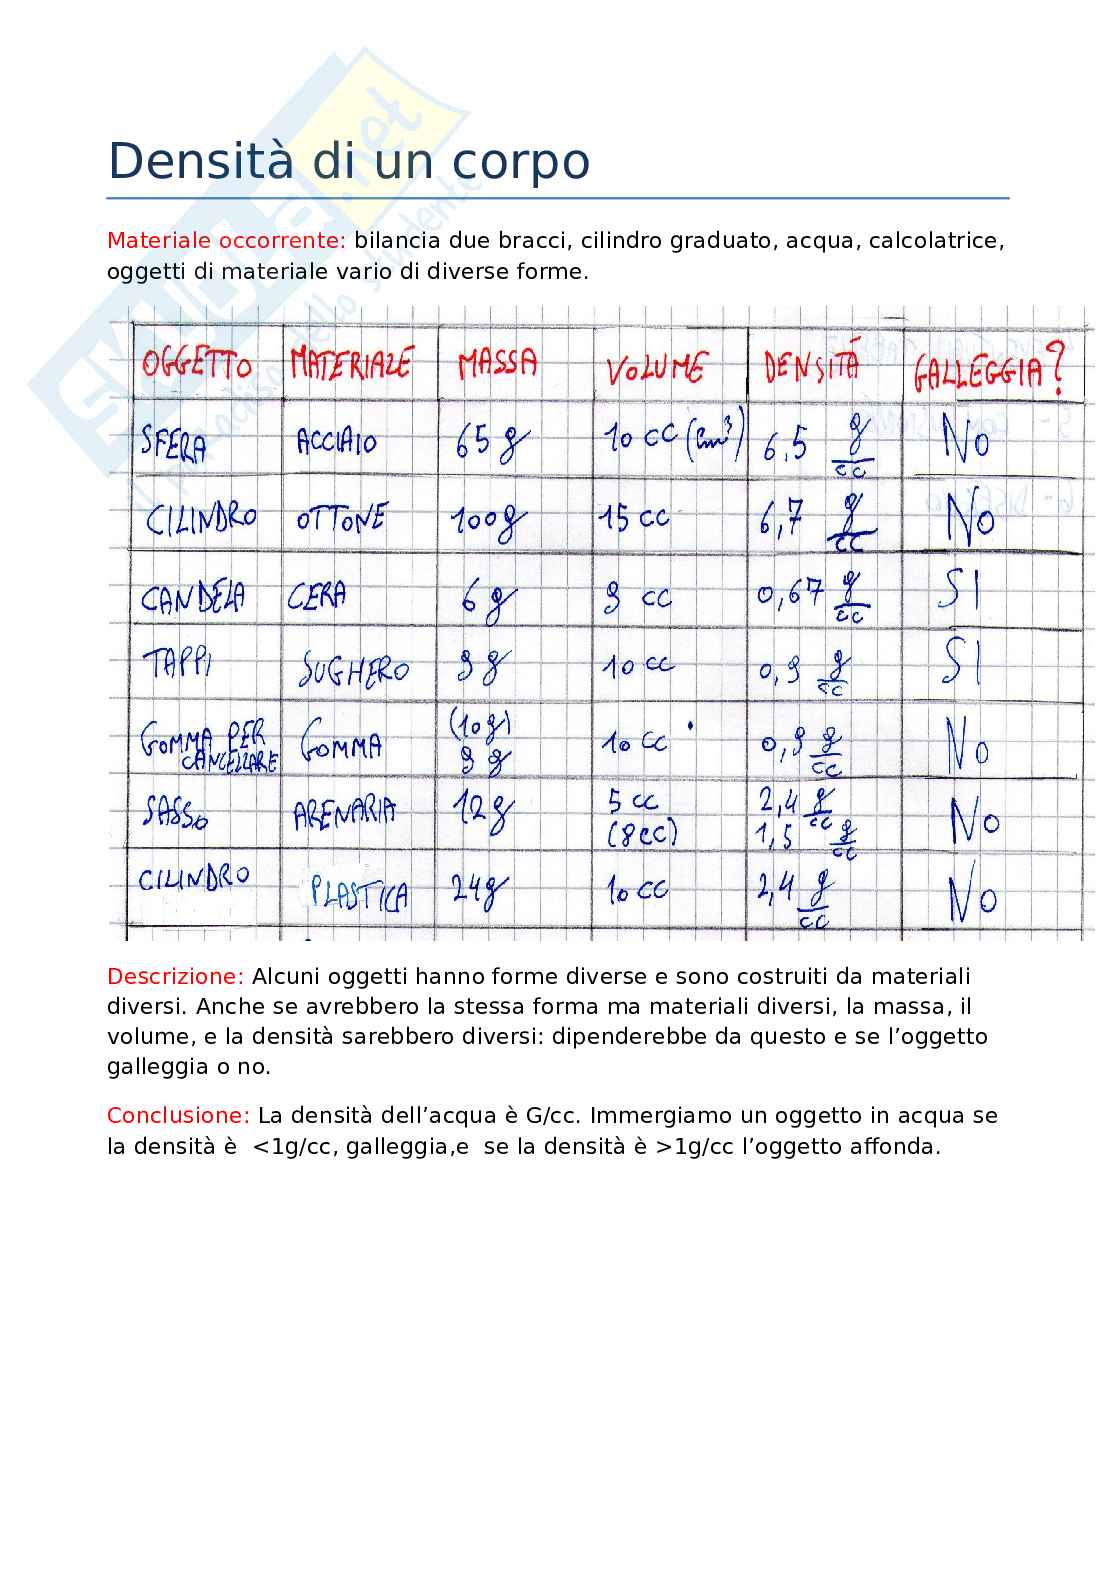 SKUOLA.net
Il paradiso dello studente
Densità di un corpo
Materiale occorrente: bilancia due bracci, cilindro graduato, acqua, calcolatrice,
oggetti di materiale vario di diverse forme.
OGGETTO MATERIALE MASSA VOLUME DENSITÁ GALLEGGIA?
SFERA ACCIAIO 65 g 10 cc (cm³) 6,5 g/cc NO
CILINDRO OTTONE 100g 15 cc 6,7 g/cc NO
CANDELA CERA 6 g 9 cc 0,67 g/cc SI
TAPPI SUGHERO 9 g 10 cc 0,9 g/cc SI
GOMMA PER CANCELLARE GOMMA (10g) 9 g 10 cc 0,9 g/cc NO
SASSO ARENARIA 12g 5 cc (8cc) 2,4 g/cc 1,5 g/cc NO
CILINDRO PLASTICA 24g 10 cc 2,4 g/cc NO
Descrizione: Alcuni oggetti hanno forme diverse e sono costruiti da materiali
diversi. Anche se avrebbero la stessa forma ma materiali diversi, la massa, il
volume, e la densità sarebbero diversi: dipenderebbe da questo e se l’oggetto
galleggia o no.
Conclusione: La densità dell’acqua è G/cc. Immergiamo un oggetto in acqua se
la densità è <1g/cc, galleggia,e se la densità è >1g/cc l’oggetto affonda.